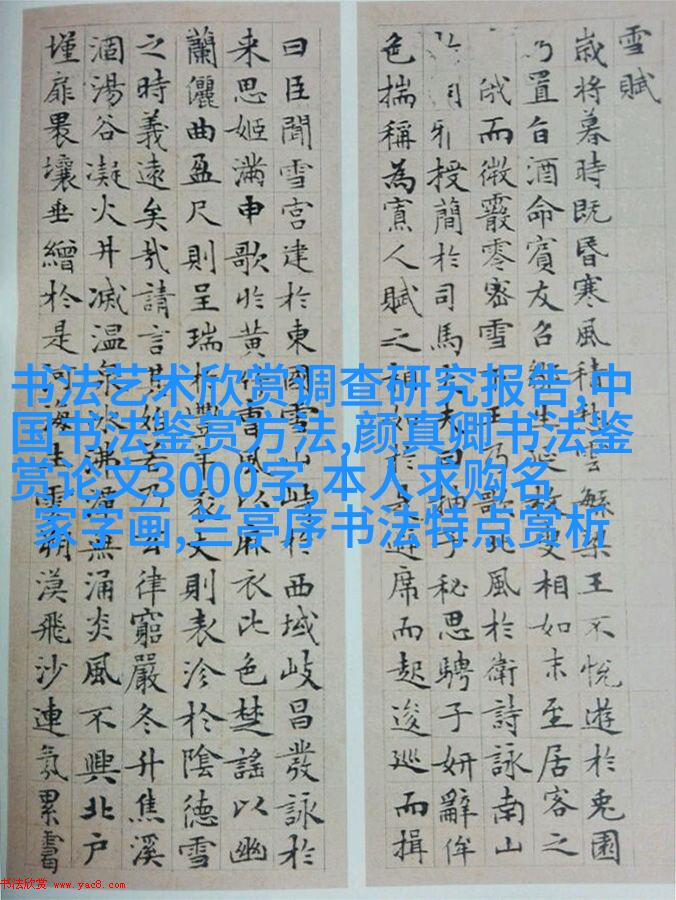 雪賦
歲將暮時既昏寒風積雲繁梁王不悅遊於兔園
乃置旨酒命賓友召生延枚叟相如末至居客之
俄而微霰零密雪王乃歌北風於衛詩詠南山
雅授簡於司馬大夫曰子秘思騁子妍辭侔
色揣稱為寡人賦之相如於是避席而起逡巡而揖
曰臣聞雪宮建於東國雪山峙於西域岐昌發詠於
来思姬滿申歌於黃竹曹風以麻衣比色楚謠以幽
蘭儷曲盈尺則呈瑞於豐年袤丈則表沴於陰德雪
之時義遠矣哉請言其始若乃玄律窮嚴冬升焦溪
涸湯谷凝火井滅温泉冰沸潭無涌炎風不興北户
墐扉壤垂繒於是河海生雲朔漠飛沙連氛累靄
书法艺术欣赏调查研究报告,中
国书法鉴赏方法,颜真卿书法鉴
赏论文3000字,本人求购名
家字画,兰亭序书法特点赏析
书法欣赏 www.yac8.com